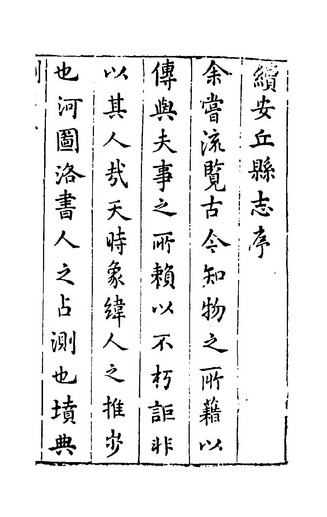 續安丘縣志序
余嘗流覽古今知物之所藉以
傳與夫事之所賴以不朽詎非
以其人哉天時象緯人之推步
也河圖洛書人之占測也墳典